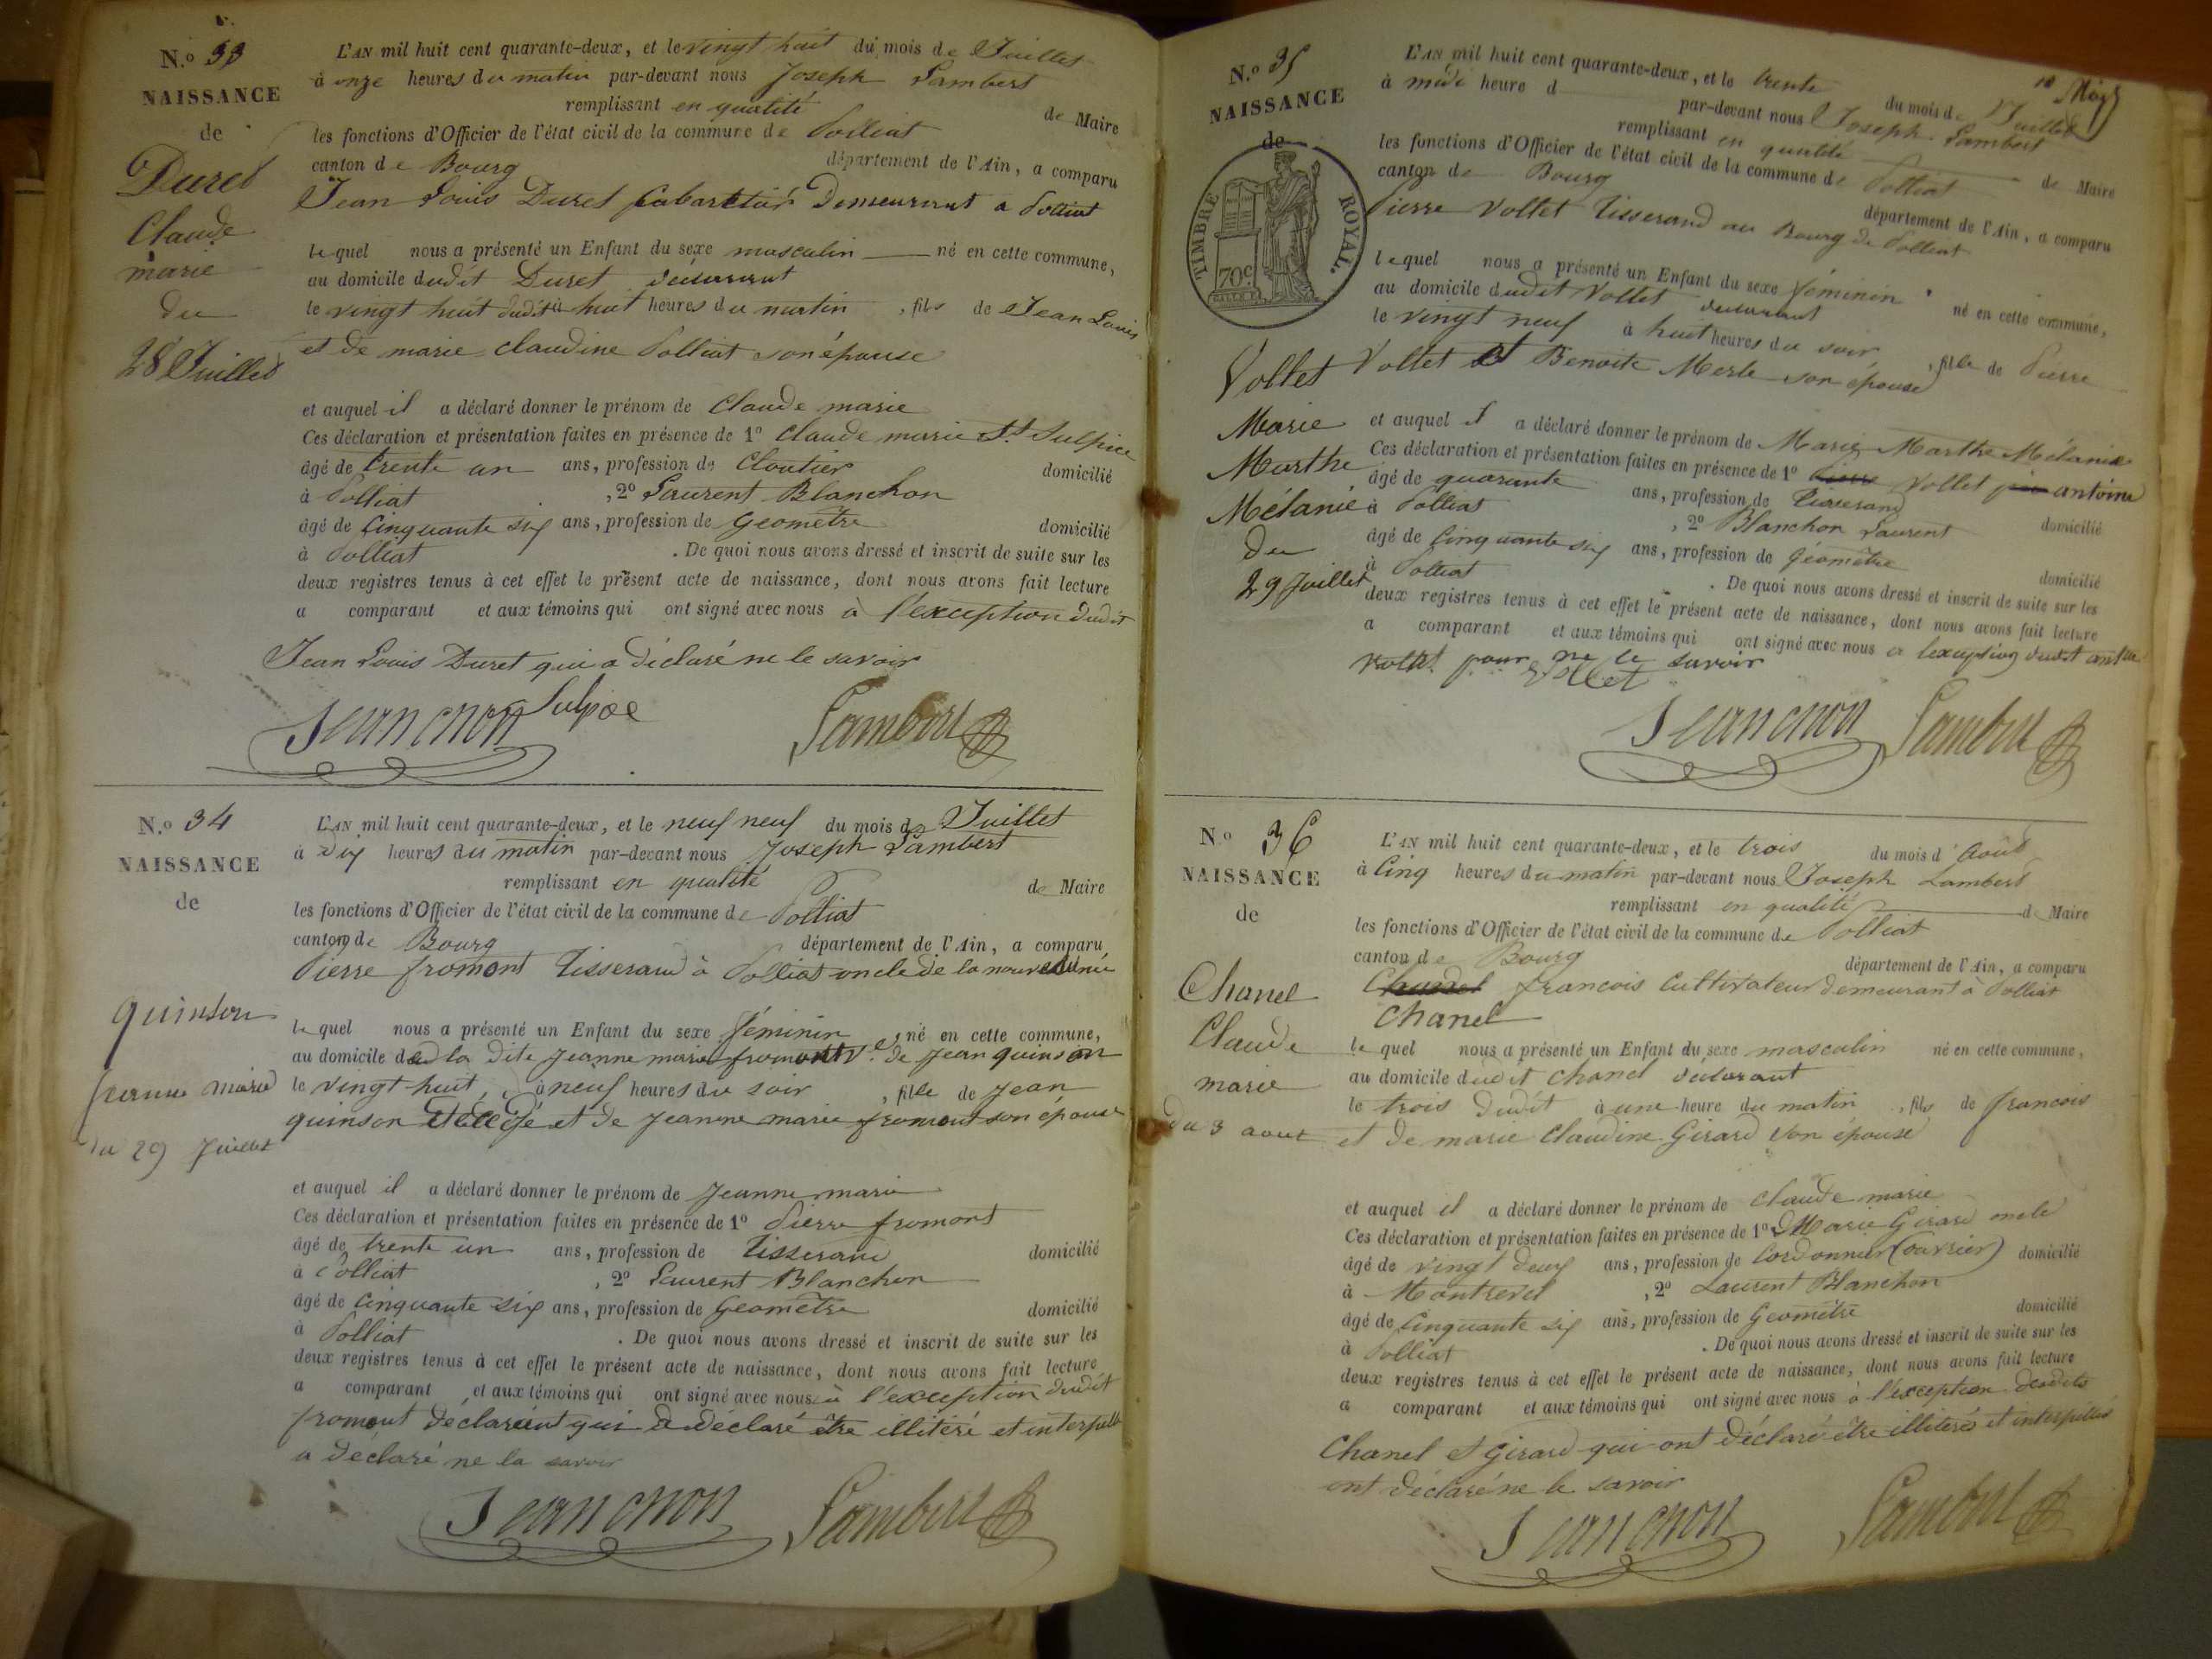 N.o 33
NAISSANCE
de
Duret
Claude
marie
du
28 Juillet
L'AN mil huit cent quarante-deux, et le vingt huit du mois de Juillet
à onze heures du matin par-devant nous Joseph Lambert
remplissant en qualité de Maire
les fonctions d'Officier de l'état civil de la commune de Polliat
canton de Bourg département de l'Ain, a comparu
Jean Louis Duret Cabaretier Demeurant a Polliat
lequel nous a présenté un Enfant du sexe masculin né en cette commune,
au domicile dudit Duret déclarant
le vingt huit dudit à huit heures du matin, fils de Jean Louis
et de marie claudine Polliat son épouse
et auquel il a déclaré donner le prénom de Claude marie
Ces déclaration et présentation faites en présence de 1o Claude marie St Sulpice
âgé de trente un ans, profession de Cloutier domicilié
à Polliat, 2o Laurent Blanchon
âgé de Cinquante six ans, profession de Geomètre domicilié
à Polliat. De quoi nous avons dressé et inscrit de suite sur les
deux registres tenus à cet effet le présent acte de naissance, dont nous avons fait lecture
a comparant et aux témoins qui ont signé avec nous à l'exception dudit
Jean Louis Duret qui a déclaré ne le savoir
Sulpice
Lambert
N.o 34
NAISSANCE
de
quinson
jeanne marie
du 29 Juillet
L'AN mil huit cent quarante-deux, et le neuf neuf du mois de Juillet
à Dix heures du matin par-devant nous Joseph Lambert
remplissant en qualité de Maire
les fonctions d'Officier de l'état civil de la commune de Polliat
canton de Bourg département de l'Ain, a comparu
Pierre fromont Tisserand à Polliat oncle de la nouveau née
lequel nous a présenté un Enfant du sexe féminin, né en cette commune,
au domicile de la dite jeanne marie fromont Ve de jean quinson
le vingt-huit, à neuf heures du soir, fille de jean
quinson et de jeanne marie fromont son épouse
et auquel il a déclaré donner le prénom de jeanne marie
Ces déclaration et présentation faites en présence de 1o Pierre fromont
âgé de trente un ans, profession de Tisserand domicilié
à Polliat, 2o Laurent Blanchon
âgé de Cinquante six ans, profession de Geomètre domicilié
à Polliat. De quoi nous avons dressé et inscrit de suite sur les
deux registres tenus à cet effet le présent acte de naissance, dont nous avons fait lecture
a comparant et aux témoins qui ont signé avec nous à l'exception dudit
fromont déclarant qui a déclaré être illitéré et interpellé
a déclaré ne la savoir
Lambert
N.o 35
NAISSANCE
de
TIMBRE ROYAL.
70c
Vollet
Marie
Marthe
Mélanie
du
29 Juillet
L'AN mil huit cent quarante-deux, et le trente du mois de Juillet
à midi heure d par-devant nous Joseph Lambert
remplissant en qualité de Maire
les fonctions d'Officier de l'état civil de la commune de Polliat
canton de Bourg département de l'Ain, a comparu
Pierre Vollet Tisserand au Bourg de Polliat
lequel nous a présenté un Enfant du sexe féminin né en cette commune,
au domicile dudit Vollet déclarant
le vingt neuf à huit heures du soir, fille de Pierre
Vollet et Benoite Merle son épouse
et auquel il a déclaré donner le prénom de Marie Marthe Mélanie
Ces déclaration et présentation faites en présence de 1o Vollet antoine
âgé de quarante ans, profession de Tisserand domicilié
à Polliat, 2o Blanchon Laurent
âgé de Cinquante six ans, profession de Geomètre domicilié
à Polliat. De quoi nous avons dressé et inscrit de suite sur les
deux registres tenus à cet effet le présent acte de naissance, dont nous avons fait lecture
a comparant et aux témoins qui ont signé avec nous a lexception dudit
vollet pour ne le savoir
Vollet
Lambert
N.o 36
NAISSANCE
de
Chanel
Claude
marie
du 3 aout
L'AN mil huit cent quarante-deux, et le trois du mois d'août
à Cinq heures du matin par-devant nous Joseph Lambert
remplissant en qualité de Maire
les fonctions d'Officier de l'état civil de la commune de Polliat
canton de Bourg département de l'Ain, a comparu
francois Cultivateur demeurant à Polliat
Chanel
lequel nous a présenté un Enfant du sexe masculin né en cette commune,
au domicile dudit Chanel déclarant
le trois dudit à une heure du matin, fils de francois
et de marie Claudine Girard son épouse
et auquel il a déclaré donner le prénom de Claude marie
Ces déclaration et présentation faites en présence de 1o Marie Girard oncle
âgé de vingt deux ans, profession de Cordonnier (ouvrier) domicilié
à Montrevel, 2o Laurent Blanchon
âgé de Cinquante six ans, profession de Geomètre domicilié
à Polliat. De quoi nous avons dressé et inscrit de suite sur les
deux registres tenus à cet effet le présent acte de naissance, dont nous avons fait lecture
a comparant et aux témoins qui ont signé avec nous à l'exception desdits
Chanel et Girard qui ont déclaré être illitérés et interpellés
ont déclaré ne le savoir
Lambert